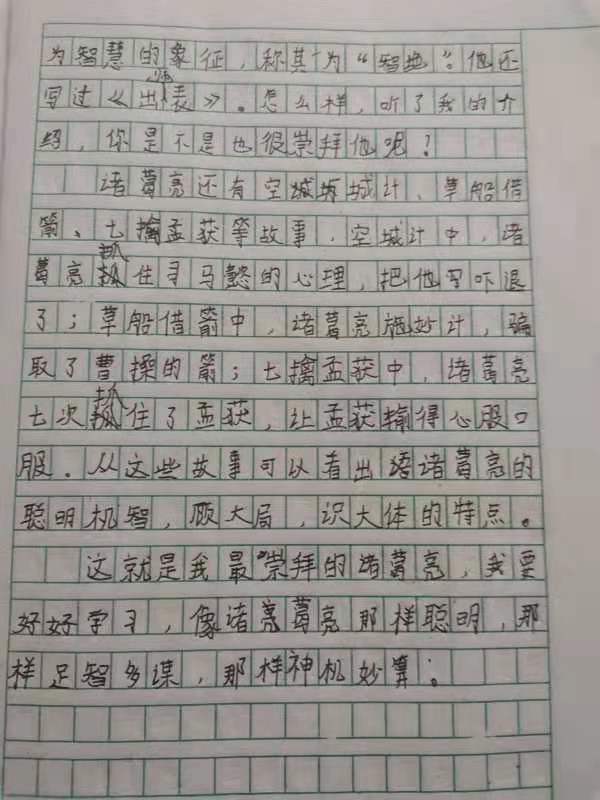 为智慧的象征，称其为“智地”。他还
写过《出师表》。怎么样，听了我的介
绍，你是不是也很崇拜他呢？
诸葛亮还有空城城计、草船借
箭、七擒孟获等故事．空城计中，诸
葛亮抓住司马懿的心理，把他吓退
了；草船借箭中，诸葛亮施妙计，骗
取了曹操的箭；七擒孟获中，诸葛亮
七次抓住了孟获，让孟获输得心服口
服．从这些故事可以看出诸葛亮的
聪明机智，顾大局，识大体的特点。
这就是我最崇拜的诸葛亮，我要
好好学习，像诸葛亮那样聪明，那
样足智多谋，那样神机妙算。